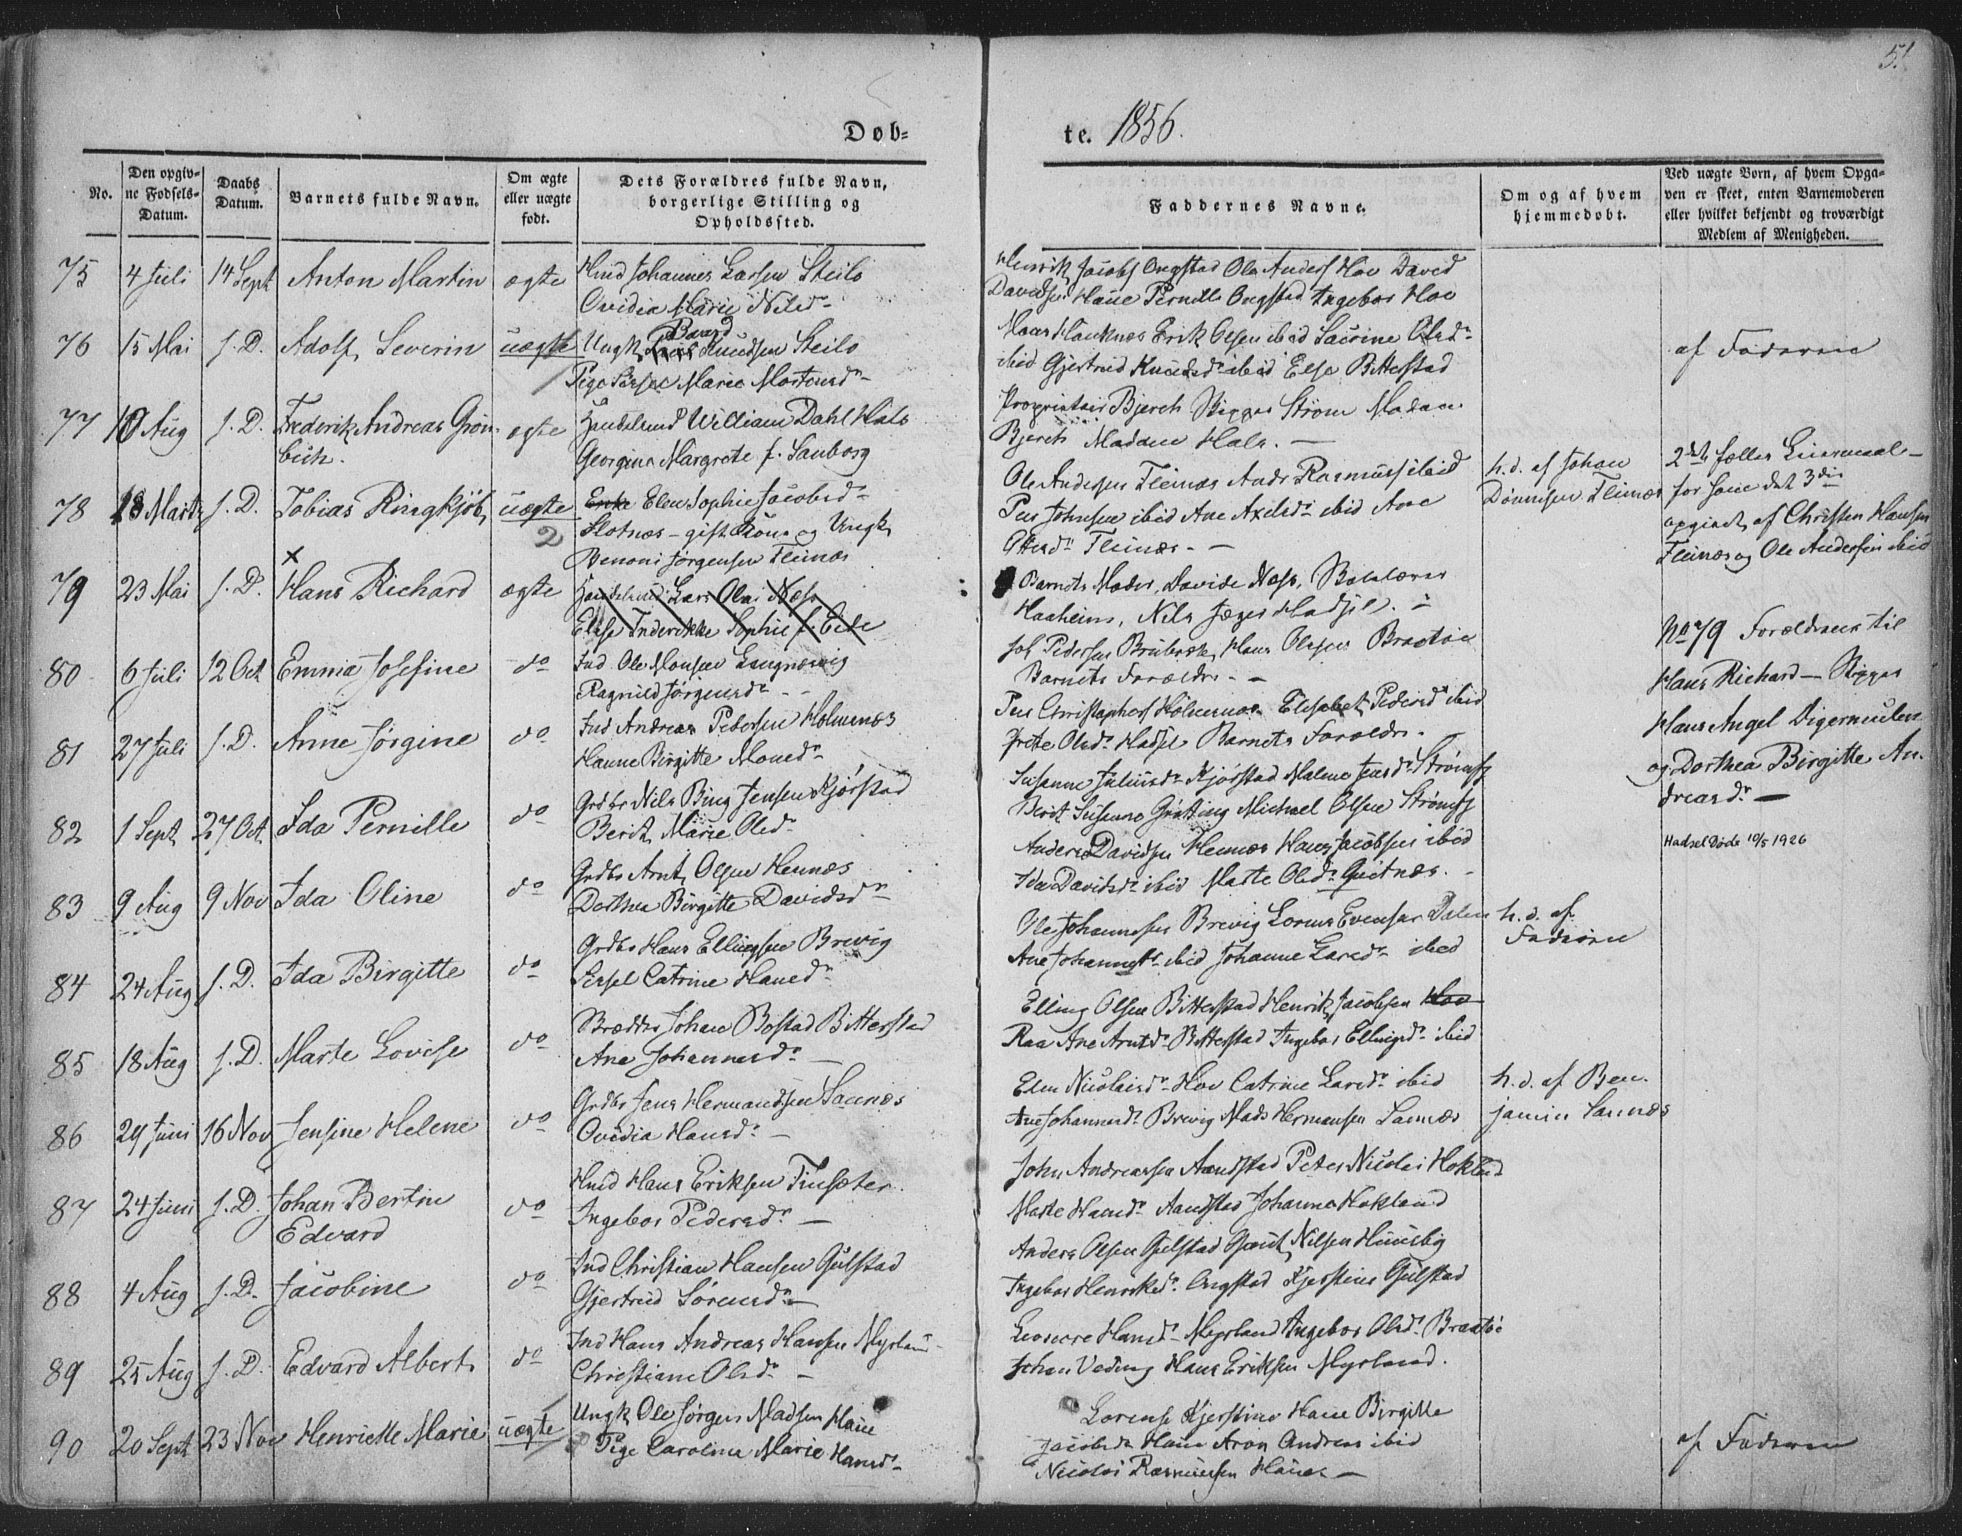 51
Døb-
te. 1856.
No.
Den opgiv-
ne Fødsels-
Datum.
Daabs
Datum.
Barnets fulde Navn.
Om ægte
eller uægte
født.
Dets Forældres fulde Navn,
borgerlige Stilling og
Opholdssted.
Faddernes Navne.
Om og af hvem
hjemmedøbt.
Ved uægte Børn, af hvem Opga-
ven er skeet, enten Barnemoderen
eller hvilket bekjendt og troværdigt
Medlem af Menigheden.
75 4 Juli 14 Sept Anton Martin ægte
Hmd Johannes Larsen Steilo
Ovidia Marie Nilsd.
Henrik Jacobs Ongstad Ole Anders Hov David
Davidsen Haue Pernille Ongstad Ingebor Hov
76 15 Mai s. D. Adolf Severin uægte
Baard
Ungk. Knudsen Steilo
Pige Sersel Marie Mortensd.
Erik Olsen ibid Olsd.
ibid Gjertrud Knudsd. ibid Else Bitterstad
af Faderen
77 10 Aug s. D. Frederik Andreas Grøn-
bech. ægte
Handelsmd William Dahl Hals
Georgine Margrete f. Sanborg
Proprietair Bjerch Skipper Strøm Madam
Bjerch Madam Hals. —
78 18 Marts s. D. Tobias Ringkjøb uægte
2
Enke Elen Sophie Jacobsd.
Slotnæs — gift Kone og Ungk
Benoni Jørgensen Fleinæs
Ole Andersen Fleinæs Anders Rasmussen ibid
Peer Johnsen ibid Ane Axelsd. ibid Ane
Olsd. Fleinæs. —
h. d. af Johan
Dønnesen Fleinæs
2det fælles Leiermaal
for hende det 3die
opgivet af Christen Hansen
Fleinæs og Ole Andersen ibid
x
79 23 Mai s. D. Hans Richard ægte
Handelsmd Lars Olai Næss
Elise Frederikke Sophie f. Eide
Barnets Moder, Davide Næss,
Haaheim, Nils Jæger Hadsel. —
No 79 Forældrene til
Hans Richard — Skipper
Hans Angel Digermulen
og Dorthea Birgitte An-
dreasd. —
Hadsel Døde 10/5 1926
80 6 Juli 12 Oct Emma Josefine do
Ind Ole Monsen Langnæsvig
Ragnild Jørgensd. —
Joh Pedersen Brubak, Hans Olsen Brottøe
Barnets Forældre. —
81 27 Juli s. D. Anne Jørgine do
Ind Andreas Pedersen Holmenæs
Hanne Birgitte Monsd.
Peer Christophers Holmenæs Elisabet Pedersd ibid
Grete Olsd. Hadsel Barnets Forældre.
82 1 Sept 27 Oct. Ida Pernille do
Grdbr Nils Bing Jensen Kjørstad
Berit Marie Olsd.
Susanne Juliusd. Kjørstad Malene Jensd.
Berit Susanne Grytting Michael Olsen
83 9 Aug 9 Nov Ida Oline do
Grdbr Arnt Olsen Hennæs
Dorthea Birgitte Davidsd.
Anders Davidsen Hennæs Hans Jacobsen ibid
Ida Davidsd. ibid Marte Olsd. Guitnæs.
84 24 Aug s. D. Ida Birgitte do
Grdbr Hans Ellingsen Brevig
Sersel Catrine Hansd.
Ole Johannesen Brevig Lorens Evensen Dalen
Ane Johannesd. ibid Johanne Larsd. ibid
h. d. af
Faderen
85 18 Aug s. D. Marte Lovise do
Brødder Johan Bostad Bitterstad
Ane Johannesd. —
Elling Olsen Bitterstad Henrik Jacobsen Hov
Raa Ane Arntsd. Bitterstad Ingebor Ellingsd. ibid
86 29 Juni 16 Nov Jensine Helene do
Grdbr Jens Hermandsen Sannæs
Ovidia Hansd. —
Elen Nicolaisd. Hov Catrine Larsd. ibid
Ane Johannesd. Brevig Mads Hermansen Sannæs
h. d. af Ben-
jamin Sannæs
87 24 Juni s. D. Johan Bertin
Edvard do
Hmd Hans Eriksen Finsæter.
Ingebor Pedersd. —
John Andreassen Aandstad Peter Nicolai Hokland
Marte Hansd. Aandstad Johanna Hokland
88 4 Aug s. D. Jacobine do
Ind Christian Hansen Gulstad
Gjertrud Sørensd. —
Anders Olsen Gulstad Nilsen
Ingebor Henriksd. Ongstad Kjerstine Gulstad
89 25 Aug s. D. Edvard Albert do
Ind Hans Andreas Hansen Myrland
Christiane Olsd. —
Hansd. Myrland Ingebor Olsd. Brottøe
Johan Veding Hans Eriksen Myrland.
90 20 Sept 23 Nov Henriette Marie uægte
Ungk Ole Jørgen Madsen Haue
Pige Carolina Marie Hansd.
Lorense Kjerstine Haue Birgitte
Jacobsd. Haue Aron Andreas ibid
Nicolai Rasmussen Haue —
af Faderen